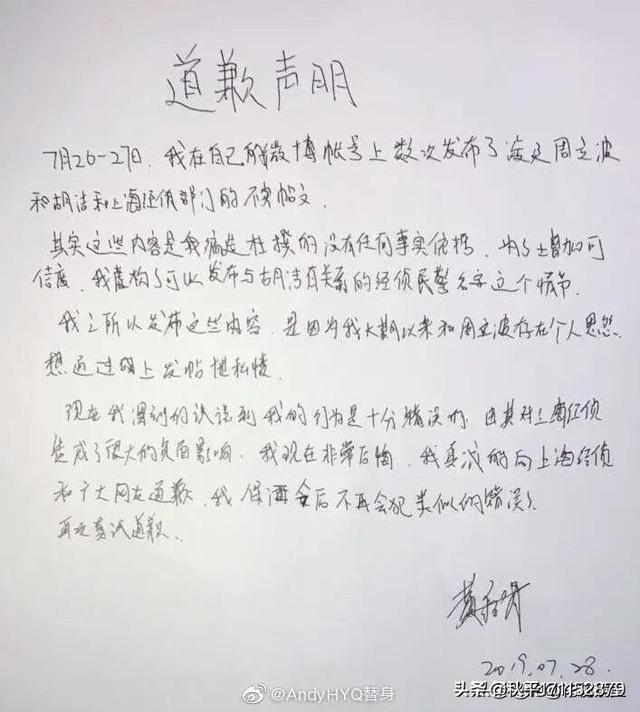 道歉声明
7月26-27日，我在自己的微博帐号上数次发布了涉及周立波
和胡洁和上海经侦部门的不实帖文。
其实这些内容是我编造杜撰的没有任何事实依据，为了增加可
信度，我虚构了可以发布与胡洁有关系的经侦民警名字这个情节。
我之所以发布这些内容，是因为我长期以来和周立波存在个人恩怨
想通过网上发帖泄私愤。
现在我深刻的认识到我的行为是十分错误的，因其对上海经侦
造成了很大的负面影响。我现在非常后悔，我真诚的向上海经侦
和广大网友道歉，我保证今后不再会犯类似的错误。
再次真诚道歉。
2019.07.28.
@AndyHYQ替身
头条